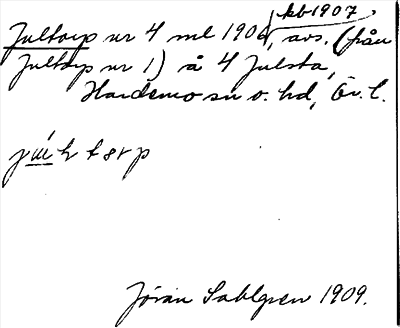 kb 1907.
Jultorp nr 4 ml 1906, avs. (från
Jultorp nr 1) å 4 Julsta,
Hardemo sn o. hd, Ör. l.
Jöran Sahlgren 1909.